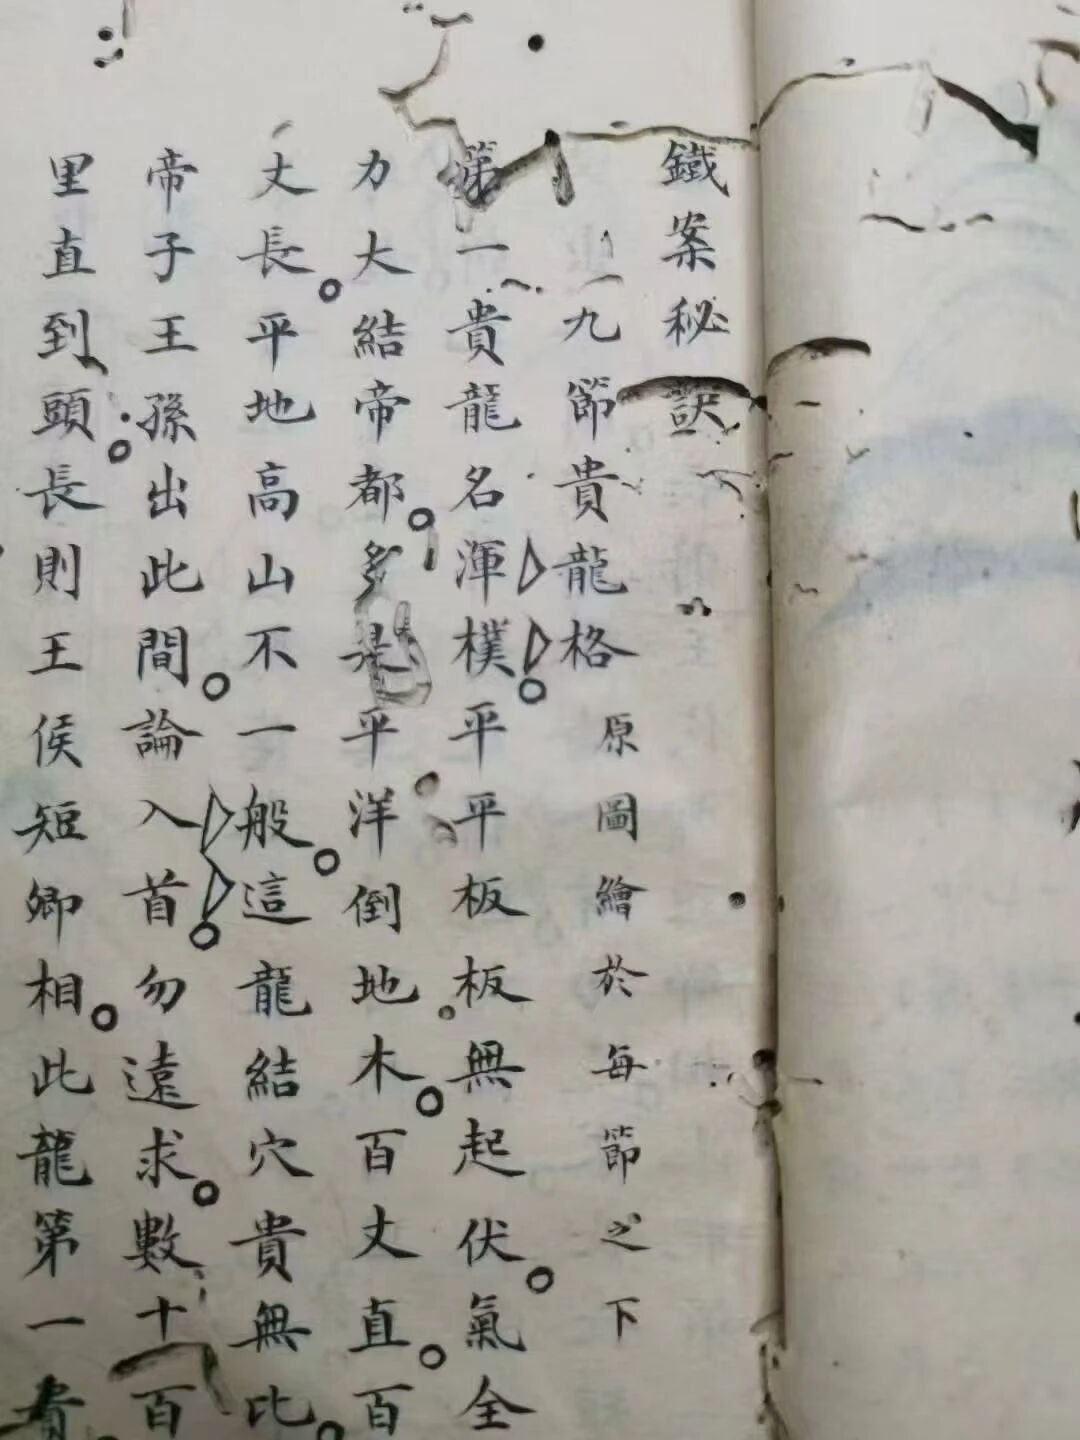 鐵案秘訣
九節貴龍格 原圖繪於每節之下
第一貴龍名渾樸。平平板板無起伏。氣全
力大結帝都。多是平洋倒地木。百丈直。百
丈長。平地高山不一般。這龍結穴貴無比。
帝子王孫出此間。論入首。勿遠求。數十百
里直到頭。長則王侯短卿相。此龍第一貴。